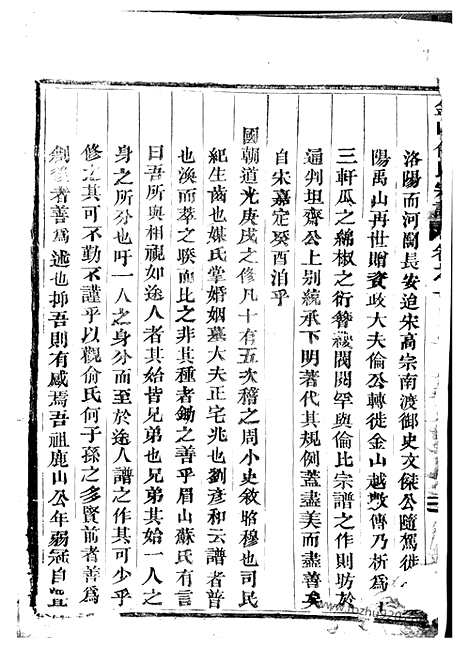 洛陽而河南長安迨宋高宗南渡御史文傑公隨駕徙
陽禹山再世贈資政大夫倫公轉徙金山越數傳乃析爲
三軒瓜之綿椒之衍簪纓閥閱罕與倫比宗譜之作則昉於
通判坦齋公上別統承下明著代其規例蓋盡美而盡善矣
自宋嘉定癸酉洎乎
國朝道光庚戌之修凡十有五次稽之周小史敘昭穆也司民
紀生齒也媒氏掌婚姻墓大夫正宅兆也劉彥和云譜者普
也渙而萃之睽而比之非其種者鋤之善乎眉山蘇氏有言
曰吾所與相視如途人者其始皆兄弟也兄弟其始一人之
身之所分也吁一人之身分而至於途人譜之作其可少乎
修之其可不勤不謹乎以觀俞氏何子孫之多賢前者善爲
創後者善爲述也抑吾則有感焉吾祖鹿山公年弱冠自